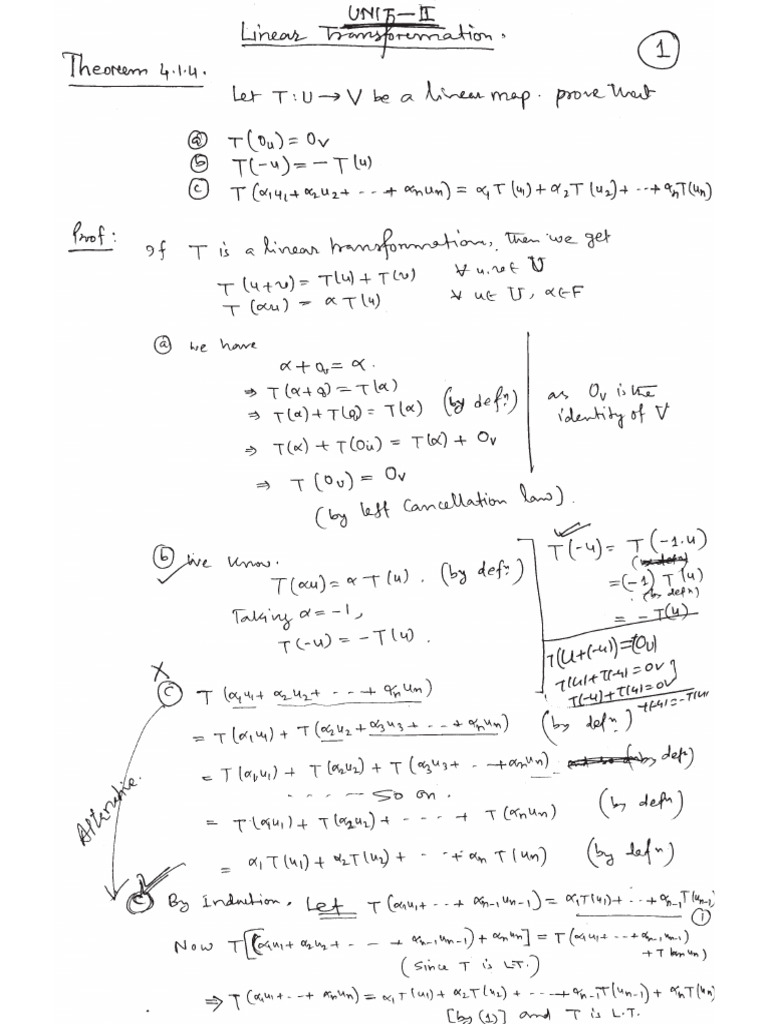 UNIT-II
Linear Transformation.
1
Theorem 4.1.4.
Let T:U→V be a linear map. prove that
(a) T(0u)=0v
(b) T(-u)=-T(u)
(c) T(α1u1+α2u2+ --+ αnun) = α1T(u1)+α2T(u2)+ --+αnT(un)
Prof: If T is a linear transformation, then we get
T(u+v)= T(u)+T(v) ∀ u,v∈ U
T(αu) = αT(u) ∀ u∈ U, α∈F
(a) we have
α+0v= α.
⇒ T(α+0)=T(α)
⇒ T(α)+T(0)= T(α) (by defn:)
⇒ T(α)+T(0u) = T(α)+ 0v
⇒ T(0u) = 0v
(by left cancellation law).
as 0v is the
identity of V
(b) we know.
T(αu)=αT(u). (by defn:)
Taking α=-1,
T(-u)=-T(u).
T(-u)= T(-1.u)
=(-1)T(u)
(by defn)
= -T(u)
T(u+(-u))=(0u)
T(u)+T(-u)=0v
T(-u)+T(u)=0v
T(-u)=-T(u)
X
(c) T(α1u1+ α2u2+ ---+ αnun)
= T(α1u1)+ T(α2u2+α3u3+ --+ αnun) (by defn:)
= T(α1u1)+ T(α2u2)+T(α3u3+ --+αnun) (by defn)
- - - - -- so on.
= T(α1u1)+T(α2u2)+ - - -+ T(αnun) (by defn)
= α1T(u1)+α2T(u2)+ - --+αn T(un) (by defn)
Alternative.
(c) By Induction. Let T(α1u1+--+ αn-1un-1)= α1T(u1)+--+αn-1T(un-1)
(1)
Now T[(α1u1+α2u2+ -- --+ αn-1un-1)+αnun] = T(α1u1+--+αn-1un-1)
+T(αnun)
(since T is L.T.)
⇒ T(α1u1+--+ αnun)=α1T(u1)+α2T(u2)+ ---+αn-1T(un-1)+ αnT(un)
[by (1)] and T is L.T.